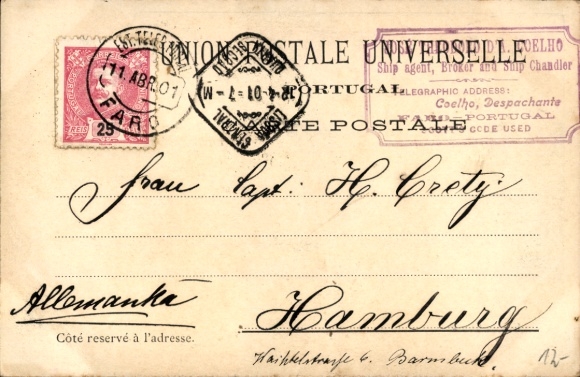 UNION POSTALE UNIVERSELLE
COELHO
Ship agent, Broker and Ship Chandler
TELEGRAPHIC ADDRESS:
Coelho, Despachante
FARO - PORTUGAL
CODE USED
EST. TELEG.
11 ABR 01
FARO
REIS
25
LISBOA CENTRAL
12-4-01-7-M
PORTUGAL
CARTE POSTALE
Frau Capt. H. Crety
Allemanha
Hamburg
Côté reservé à l'adresse.
6. Barmbeck
12-